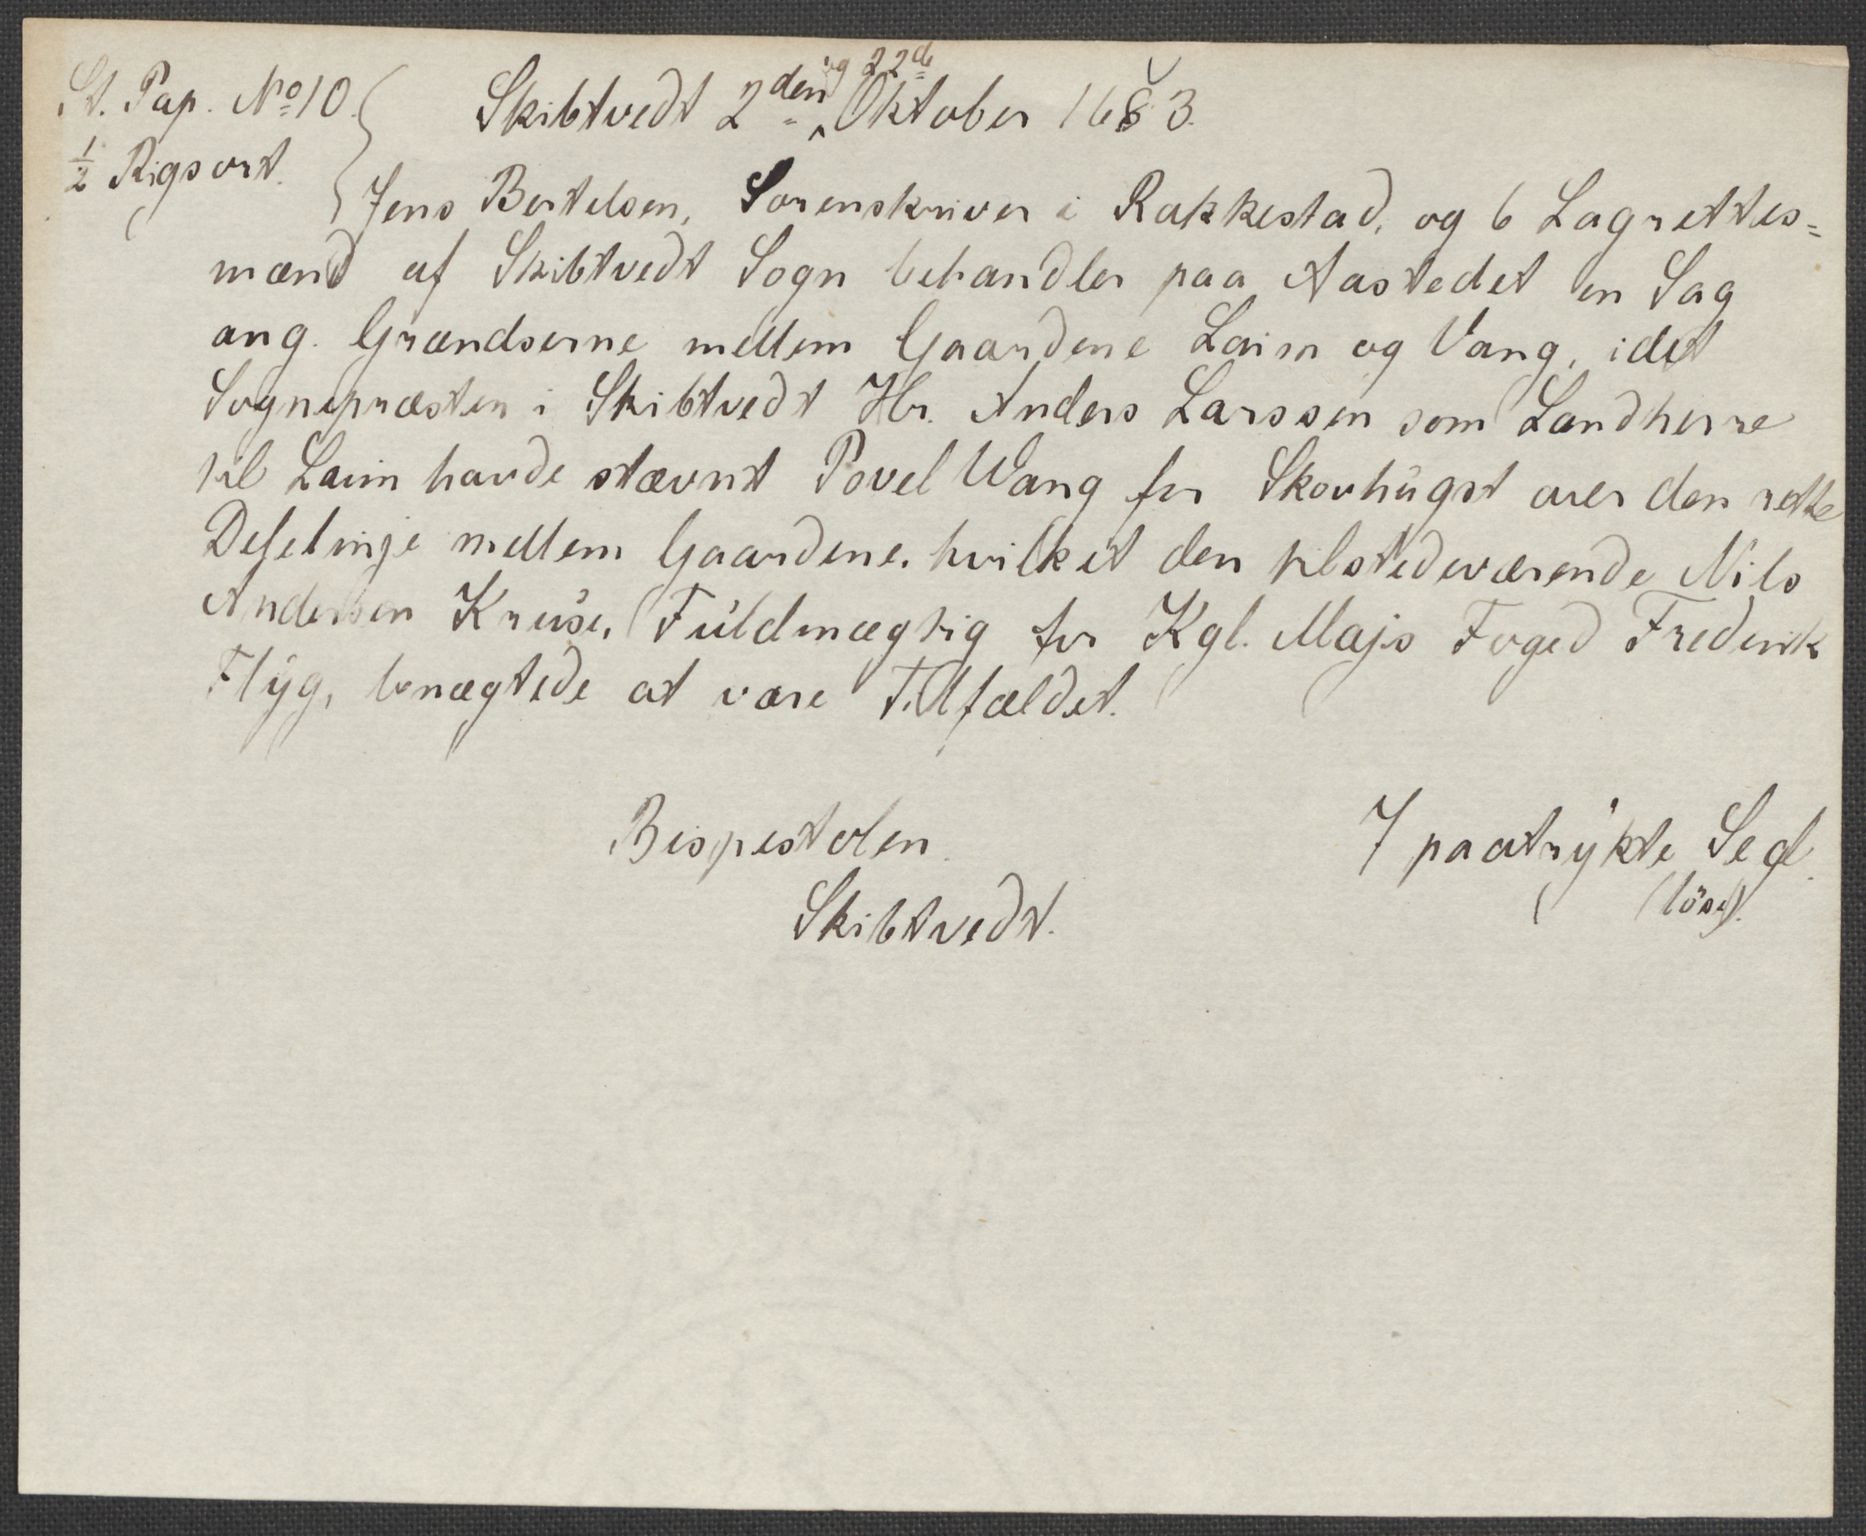 St. Pap. No 10.
½ Rigsort.
Skibtvedt 2den og 22de Oktober 1683.
Jens Bertelsen, Sorenskriver i Rakkestad, og 6 Lagrettes=
mænd af Skibtvedt Sogn behandler paa Aastedet en Sag
ang. Grændserne mellem Gaardene Laim og Vang, idet
Sognepræsten i Skibtvedt Hr. Anders Larssen som Landherre
til Laim havde stævnt Povel Wang for Skovhugst over den rette
Delelinje mellem Gaardene, hvilket den tilstedeværende Nils
Andersen Kruse, Fuldmægtig for Kgl. Majs Foged Frederik
Flyg, benægtede at være Tilfældet.
Bispestolen.
7 paatrykte Segl.
(löse).
Skibtvedt.